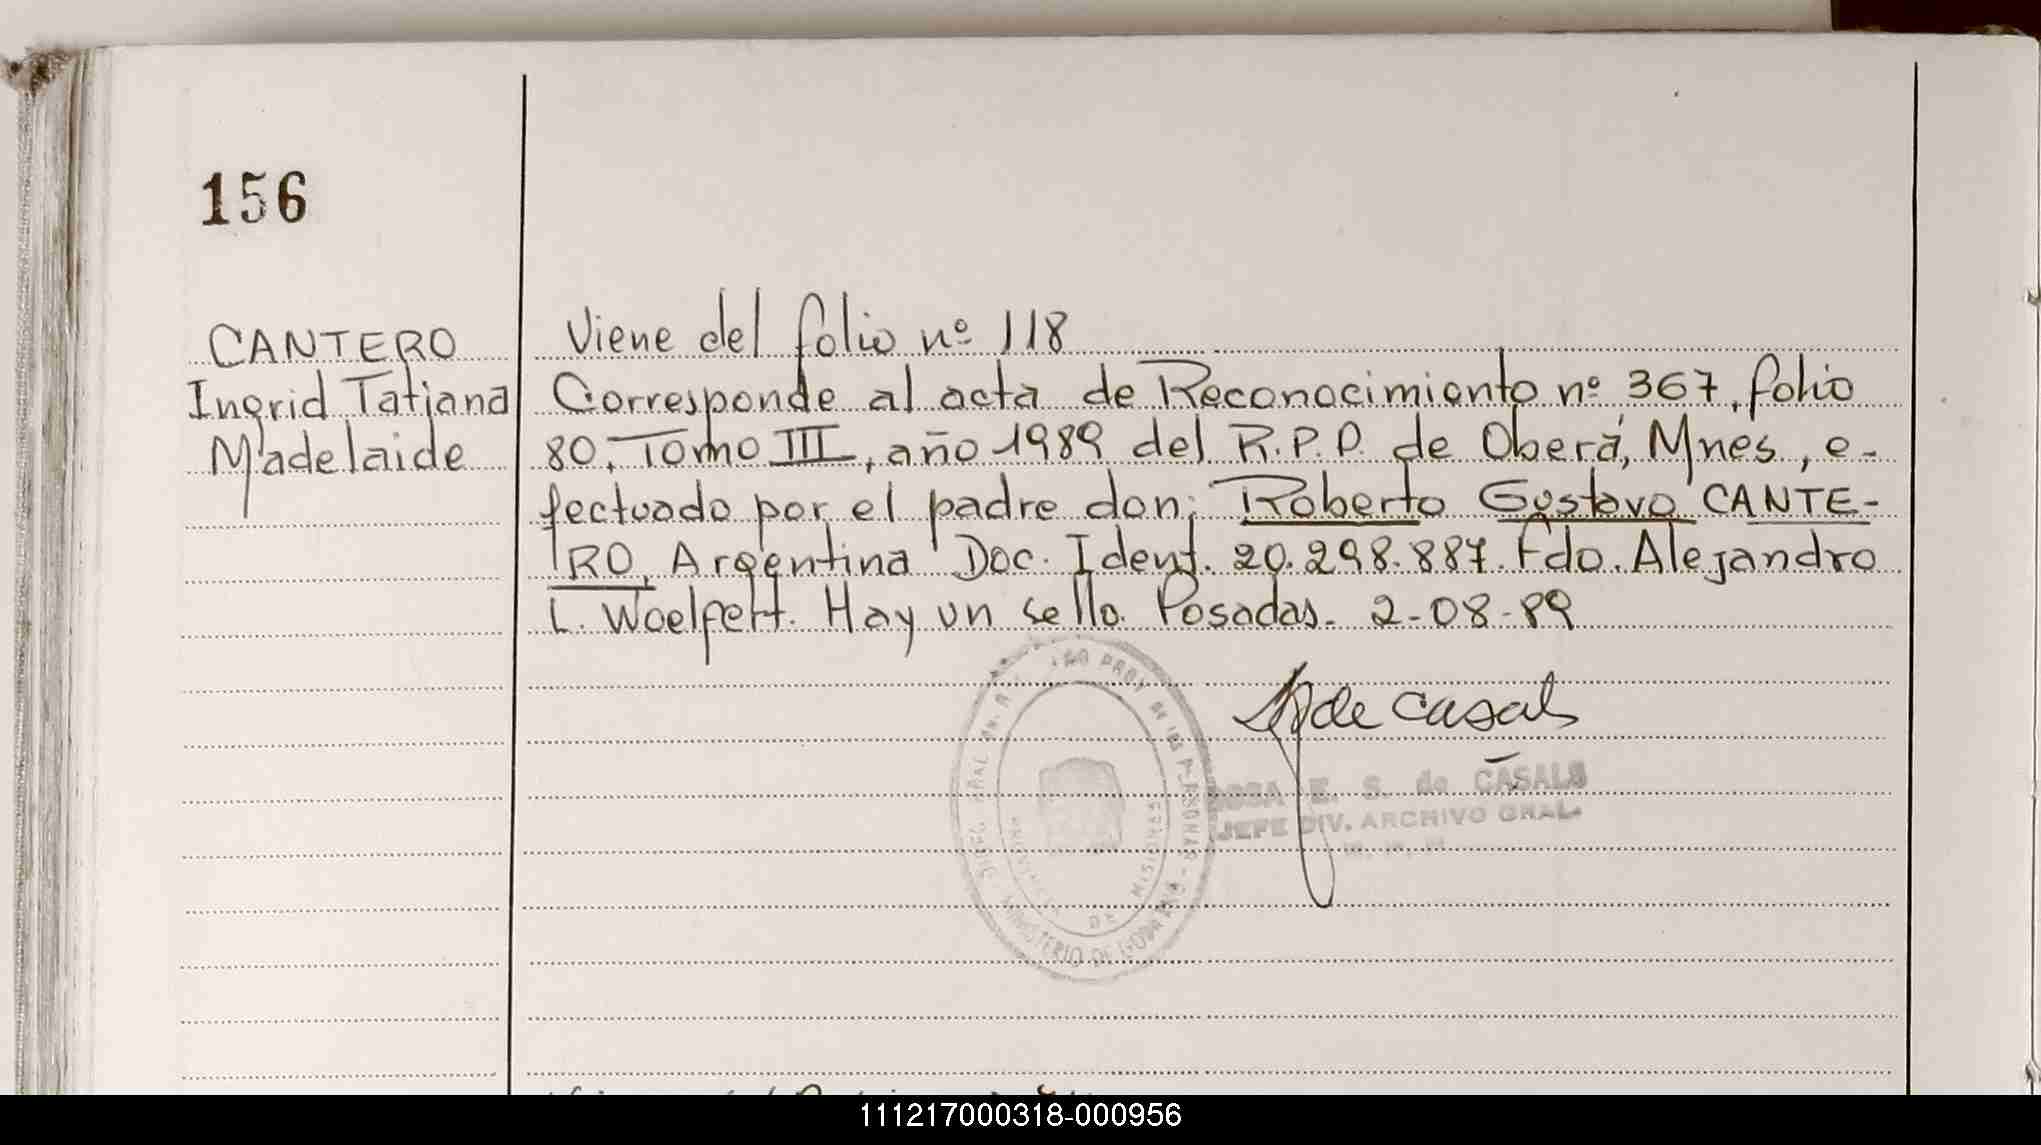 156
CANTERO
Ingrid Tatiana
Madelaide
Viene del folio nº 118
Corresponde al acta de Reconocimiento nº 367, folio
80, Tomo III, año 1989 del R.P.P. de Oberá, Mnes, e-
fectuado por el padre don; Roberto Gustavo CANTE-
RO, Argentina Doc. Ident. 20.298.887. Fdo. Alejandro
L. Woelfert. Hay un sello. Posadas. 2-08-89
de Casals
E. S. de CASALS
JEFE DIV. ARCHIVO GRAL.
PROV. DE LAS PERSONAS
MINISTERIO DE
DE MISIONES
111217000318-000956